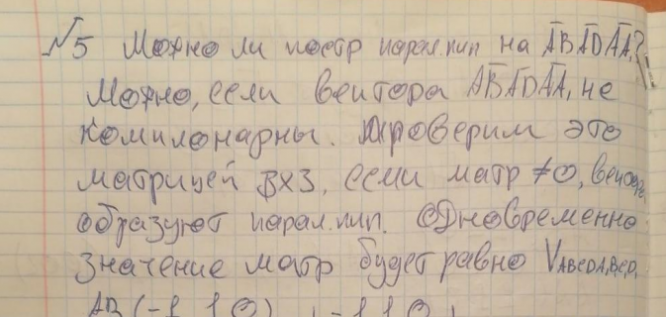 №5 Можно ли постр парал.пип на AB̄ AD̄ AA̅₁?
Можно, если вектора AB̄ AD̄ AA̅₁ не
компланарны. Проверим это
матрицей 3x3, если матр ≠0, вектора
образуют парал.пип. Одновременно
значение матр будет равно V ABCDA₁B₁C₁D₁
AB (-1 1 0) | -1 1 0 |